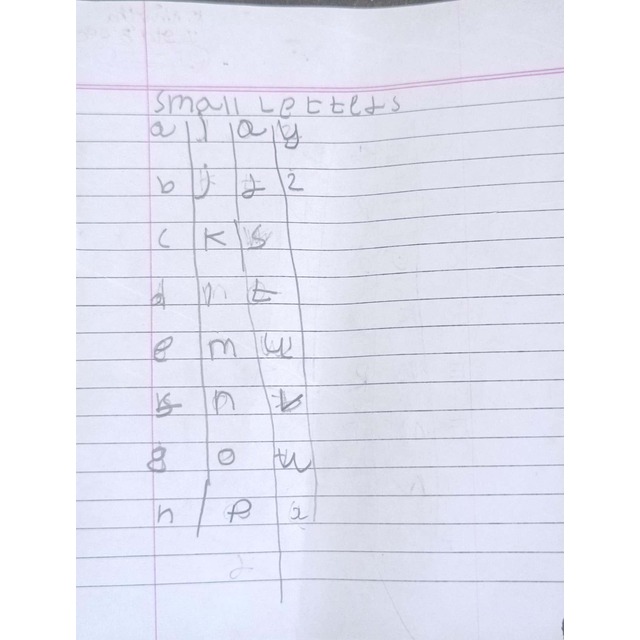 small Letters
a i a y
b j r z
c K s
d n t
e m u
f n v
g o w
h p x